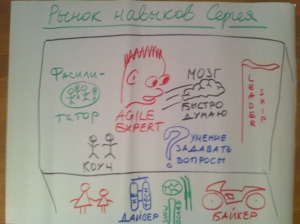 Рынок навыков Сергея
Фасили-
татор
AGILE
EXPERT
МОЗГ
БЫСТРО
ДУМАЮ
LEADER
SHIP
КОУЧ
?
УМЕНИЕ
ЗАДАВАТЬ
ВОПРОСЫ
ДАЙВЕР
БАЙКЕР